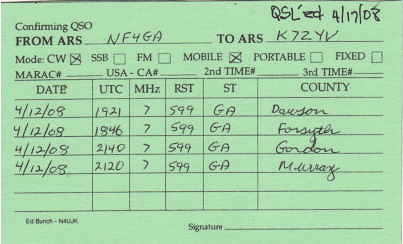 QSL'ed 4/17/08
Confirming QSO
FROM ARS NF4GA TO ARS K7ZYV
Mode: CW ☒ SSB ☐ FM ☐ MOBILE ☒ PORTABLE ☐ FIXED ☐
MARAC# USA - CA# 2nd TIME# 3rd TIME#
DATE UTC MHz RST ST COUNTY
4/12/08 1921 7 599 GA Dawson
4/12/08 1846 7 599 GA Forsyth
4/12/08 2140 7 599 GA Gordon
4/12/08 2120 7 599 GA Murray
Ed Bunch - N4UJK
Signature